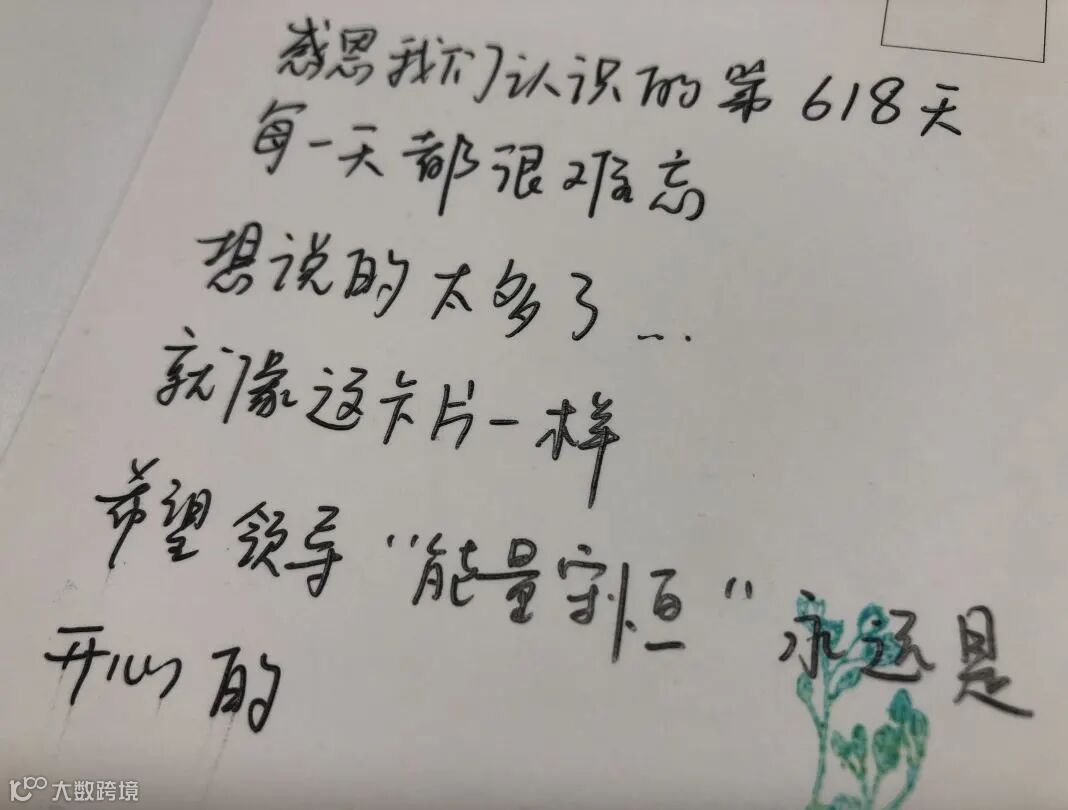 感恩我们认识的第618天
每一天都很难忘
想说的太多了...
就像这卡片一样
希望领导“能量守恒”永远是
开心的
大数跨境